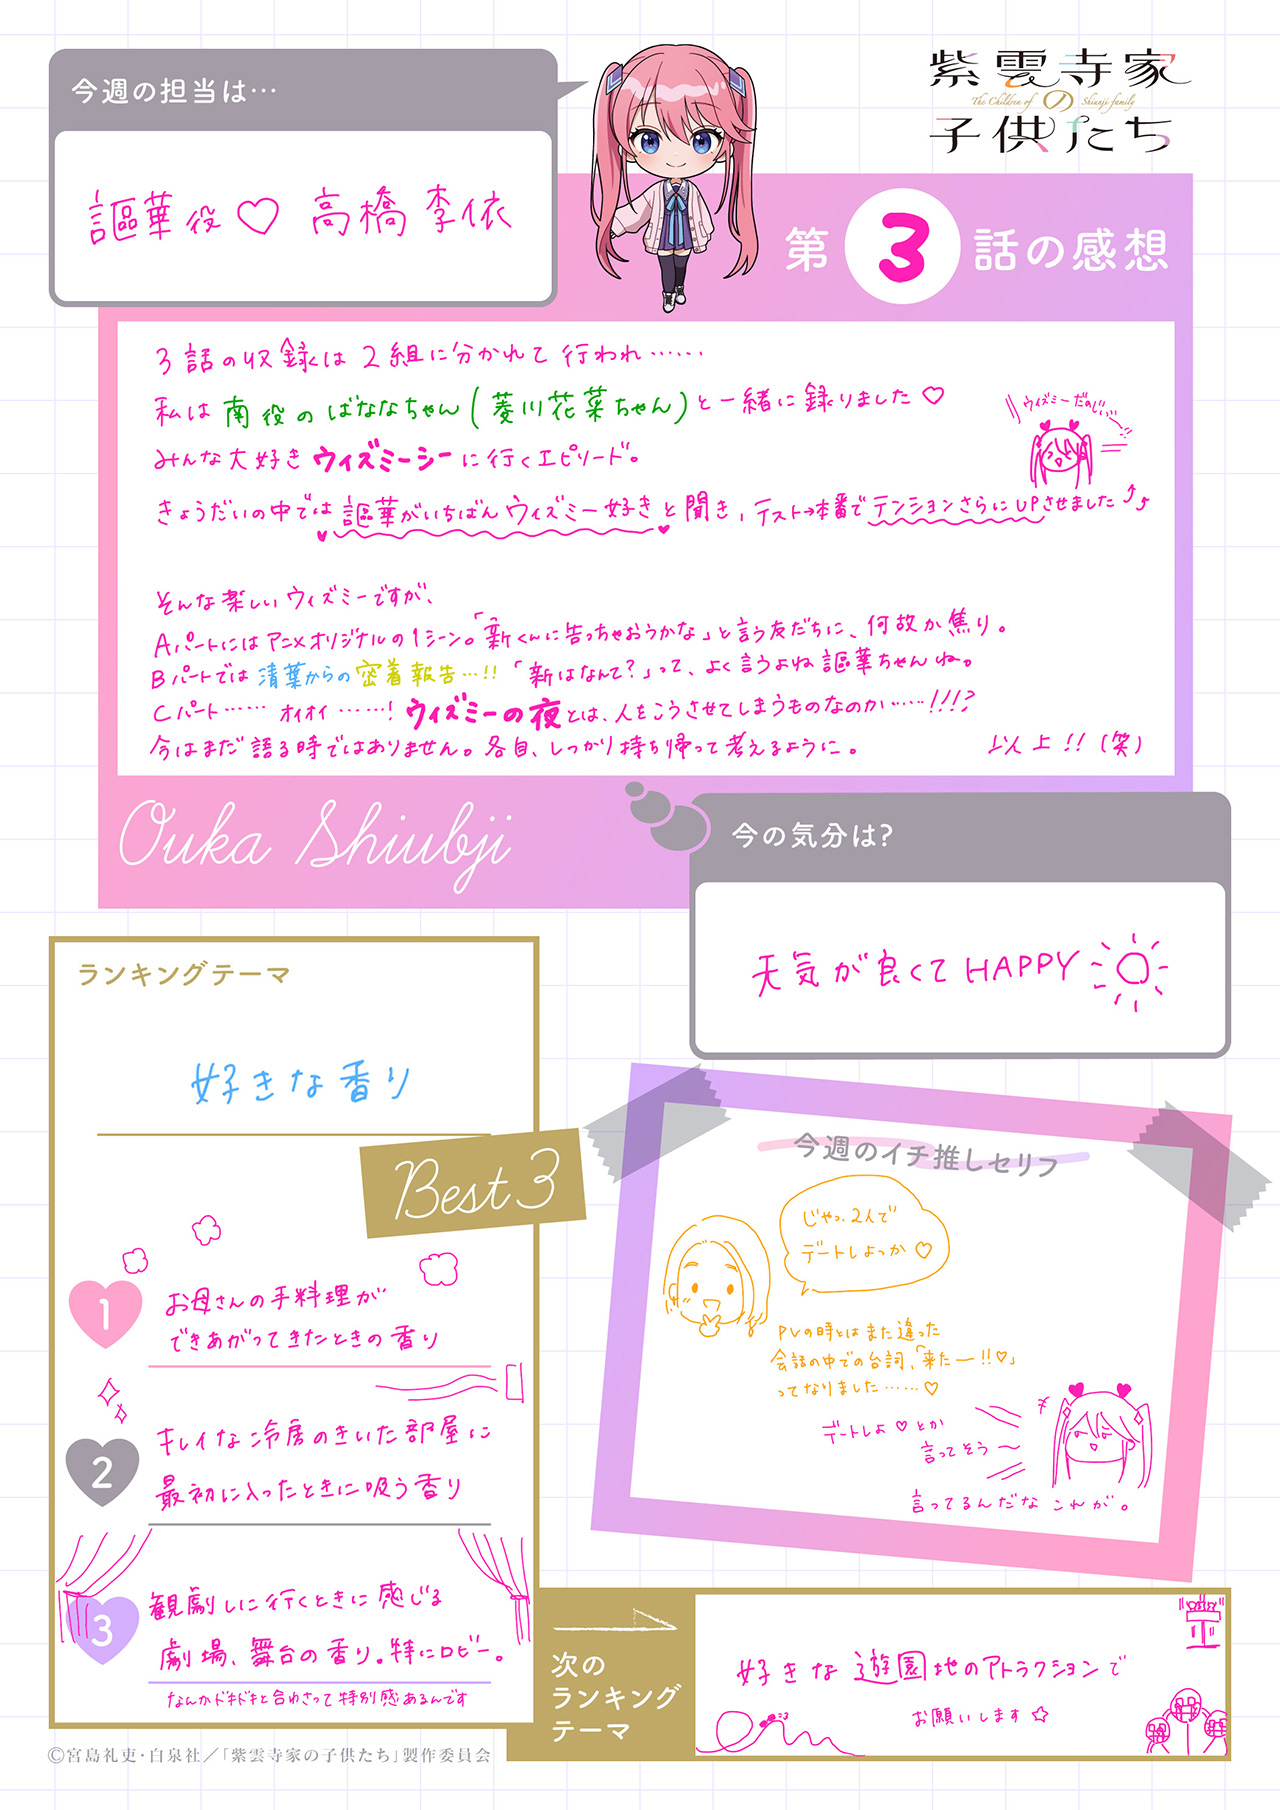 今週の担当は…
謳華役♡ 高橋李依
紫雲寺家の子供たち
The Children of Shiunji family
第3話の感想
3話の収録は2組に分かれて行われ……
私は南役のばななちゃん(菱川花菜ちゃん)と一緒に録りました♡
みんな大好きウィズミーシーに行くエピソード。
ウィズミーだのじいぃ
きょうだいの中では謳華がいちばんウィズミー好きと聞き、テスト→本番でテンションさらにUPさせました⤴⤴
そんな楽しいウィズミーですが、
Aパートにはアニメオリジナルの1シーン。「新くんに告っちゃおうかな」と言う友だちに、何故か焦り。
Bパートでは清葉からの密着報告…!!「新はなんて?」って、よく言うよね謳華ちゃんね。
Cパート…… オイオイ……!ウィズミーの夜とは、人をこうさせてしまうものなのか……!!!?
今はまだ語る時ではありません。各自、しっかり持ち帰って考えるように。 以上!!(笑)
Ouka Shiubji
今の気分は?
天気が良くてHAPPY
ランキングテーマ
好きな香り
Best3
1
お母さんの手料理が
できあがってきたときの香り
2
キレイな冷房のきいた部屋に
最初に入ったときに吸う香り
3
観劇しに行くときに感じる
劇場、舞台の香り。特にロビー。
なんかドキドキと合わさって特別感あるんです
今週のイチ推しセリフ
じゃっ、2人で
デートしよっか♡
PVの時とはまた違った
会話の中での台詞、「来たー!!♡」
ってなりました……♡
デートしよ♡とか
言ってそう〜
言ってるんだな これが。
次の
ランキング
テーマ
好きな遊園地のアトラクションで
お願いします☆
©宮島礼吏・白泉社／「紫雲寺家の子供たち」製作委員会